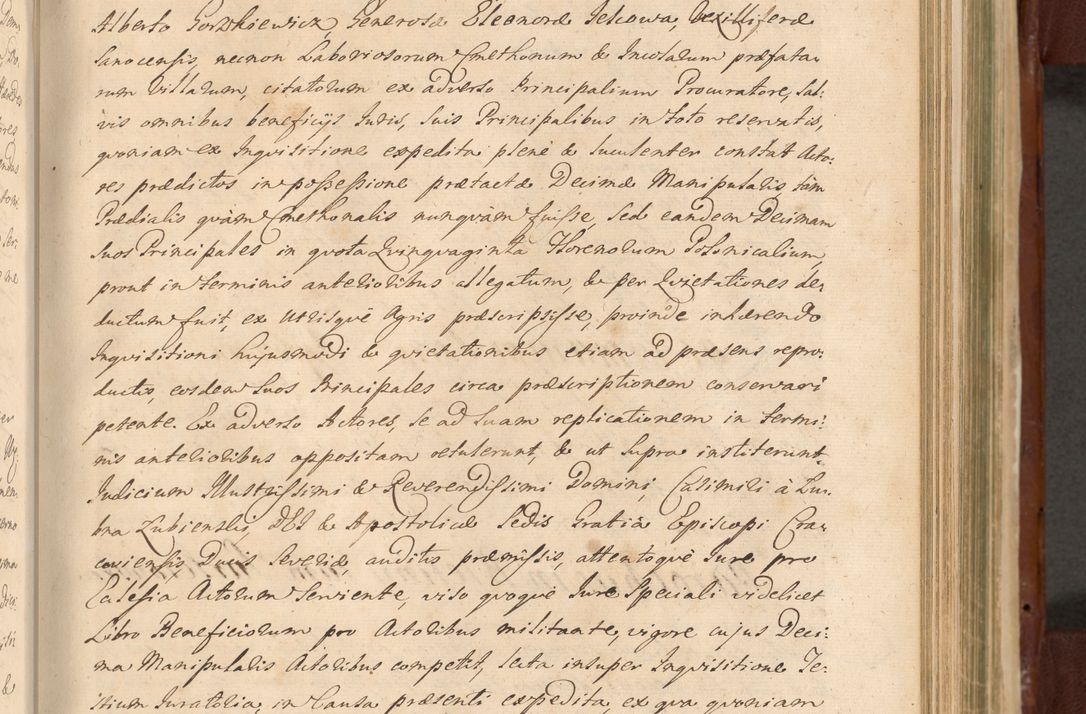 Alberto Gorzkiewicz, Generosæ Eleonoræ Jelcowa, Vexilliferæ
Sanocensis, necnon Laboriosorum Cmethonum & Incolarum præfata-
rum Villarum, citatorum ex adverso Principalium Procuratore, sal-
vis omnibus beneficijs Iuris, suis Principalibus in toto reservatis,
qvoniam ex Inqvisitione expedita plenè & luculenter constat Acto-
res prædictos in possessione prætactæ Decimæ Manipularis, tàm
Prædialis qvàm Cmethonalis nunqvàm fuisse, sed eandem Decimam
suos Principales in qvota Qvinqvaginta Florenorum Polonicalium,
prout in terminis anterioribus allegatum, & per Qvietationes de-
ductum fuit, ex utrisqvè Agris præscripsisse, proinde inhærendo
Inqvisitioni hujusmodi & qvietationibus etiam ad præsens repro-
ductis, eosdem suos Principales circa præscriptionem conservari
petente. Ex adverso Actores, se ad suam replicationem in termi-
nis anterioribus oppositam retulerunt, & ut supra institerunt.
Iudicium Illustrissimi & Reverendissimi Domini, Casimiri à Lu-
bna Lubienski, DEI & Apostolicæ Sedis Gratiâ Episcopi Cra-
coviensis Ducis Severiæ, auditis præmissis, attentoqvè Iure pro
Ecclesia Actorum serviente, viso qvoqvè Iure speciali videlicet
Libro Beneficiorum pro Actoribus militante, vigore cujus Deci-
ma Manipularis Actoribus competit, lecta insuper Inqvisitione Te-
stium Iuratoria, in Causa præsenti expedita, ex qva qvoniam